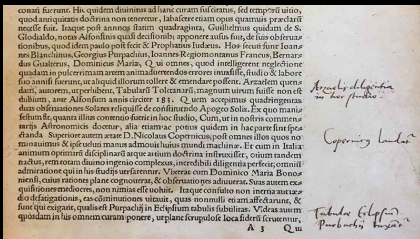 conari fuerunt. His quidem diuinitus ad hanc curam suscitatis, sed temporū uitio,
quod antiquitatis doctrina non tenerentur, labasceret etiam opus quamuis præclarū
necesse fuit. Itaque post annos statim quadraginta, Guilhelmus quidam de S.
Glodialdo, notas Alfonsinis quasi decisionib. apponere ausus fuit, de suis obserua
tionibus, quod idem paulo pòst fecit & Prophatius Iudæus. Hos secuti sunt Ioan-
nes Blanchinus, Georgius Purpachius, Ioannes Regiomontanus Francus, Bernar-
dus Gualterus, Dominicus Maria, Qui omnes, quod intelligerent neglectione
quadam in pulcerrimam artem animaduertendos errores inuasisse, studio & labore
suo annisi fuerunt, ut aliquid illorum tollere & emendare possent. Arzaelem quen-
dam, autorem, ut perhibent, Tabularū Toletanarū, magnum uirum fuisse non est
dubium, ante Alfonsum annis circiter 181. Quem accepimus quadringentas
duas obseruationes Solares reliquisse de consistendo Apogeo Solis. Ex quo manife
stum sit, quanti illius contentio fuerit in hoc studio, Cum, ut in nostris commen-
tarijs Astronomicis docetur, alia etiam ac potius quidem in hac parte sint spe-
ctanda Superiore autem ætate D. Nicolaus Copernicus, post omnes illos quos no-
minauimus & ipse ueluti manus admouit huius mundi machinæ. Et cum in Italia
animum optimarū disciplinarū arque artium doctrina instruxisset, omnium tandem
nactus, remotam diuino ingenio complexus, incredibili diligentia perfecit, omnisq́;
admiratione qui in his studijs uersarentur. Vixerat cum Dominico Maria Bono-
niensi, cuius rationes plane cognouerat, & obseruationes adiuuerat. Suas autem ex-
quisitiones mediocres, non nimias esse uoluit. Itaque consulto non inertia aut tæ-
dio defatigationis, eas cōminutiones uitauit, quas nonnulli etiam affectarunt, &
sunt qui exigant, qualis est Purpachij in Eclipsium tabulis subtilitas. Videas autem
quosdam in his omnem curam ponere, ut plane scrupulose loca siderū scrutentur,
A 3 Qui
Arzaelis diligentia
in hoc studio
Copernicus laudatur
Tabulæ Eclipsium
Purbachij